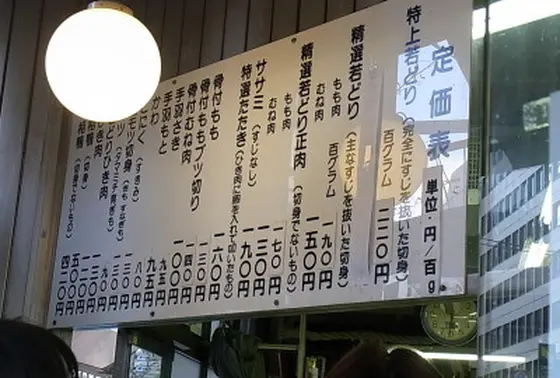 定価表 単位・円/百g
特上若どり (完全にすじを抜いた切身)
百グラム 二二〇円
精選若どり (主なすじを抜いた切身)
もも肉
むね肉 百グラム 一九〇円
精選若どり正肉 (切身でないもの)
もも肉 一五〇円
むね肉 一七〇円
ササミ (すじなし) 一三〇円
特選たたき (ひき肉に卵を入れて叩いたもの) 一九〇円
骨付もも 一六〇円
骨付ももブツ切り 一三〇円
骨付むね肉 一四〇円
手羽さき 一〇〇円
手羽もと 九五円
かわ 九五円
(すきみ) 八〇円
モツ切身 (きも、すなぎも) 一三〇円
(タマニチ、肩ぎも) 九〇円
ひき肉 一三〇円
(切身) 一二〇円
(切身でないもの) 五〇〇円
四二〇円